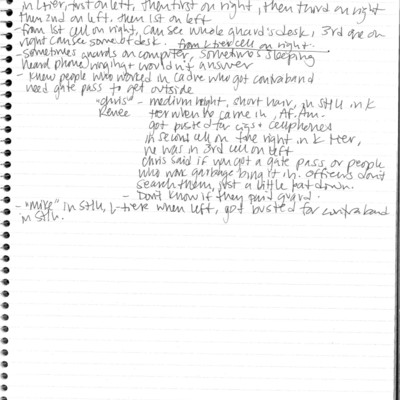 in L tier, first on left, then first on right, then third on right
then 2nd on left, then 1st on left
- from 1st cell on right, can see whole guard's desk, 3rd are on
right can see some of desk. from L tier cell on right.
- sometimes guards on computer, sometimes sleeping
heard phone ringing + wouldn't answer
- knew people who worked in cadre who got contraband
need gate pass to get outside
"Chris" - medium height, short hair, in still in K
Renee tier when he came in, Af. Am.
got busted for cigs + cellphones
in second cell on the right in K tier,
he was in 3rd cell on left
Chris said if you got a gate pass, or people
who work garbage bring it in. Officers don't
search them, just a little pat down.
- Don't know if they paid guard.
- "Mike" in SHU, L-tier when left, got busted for contraband
in SHU.